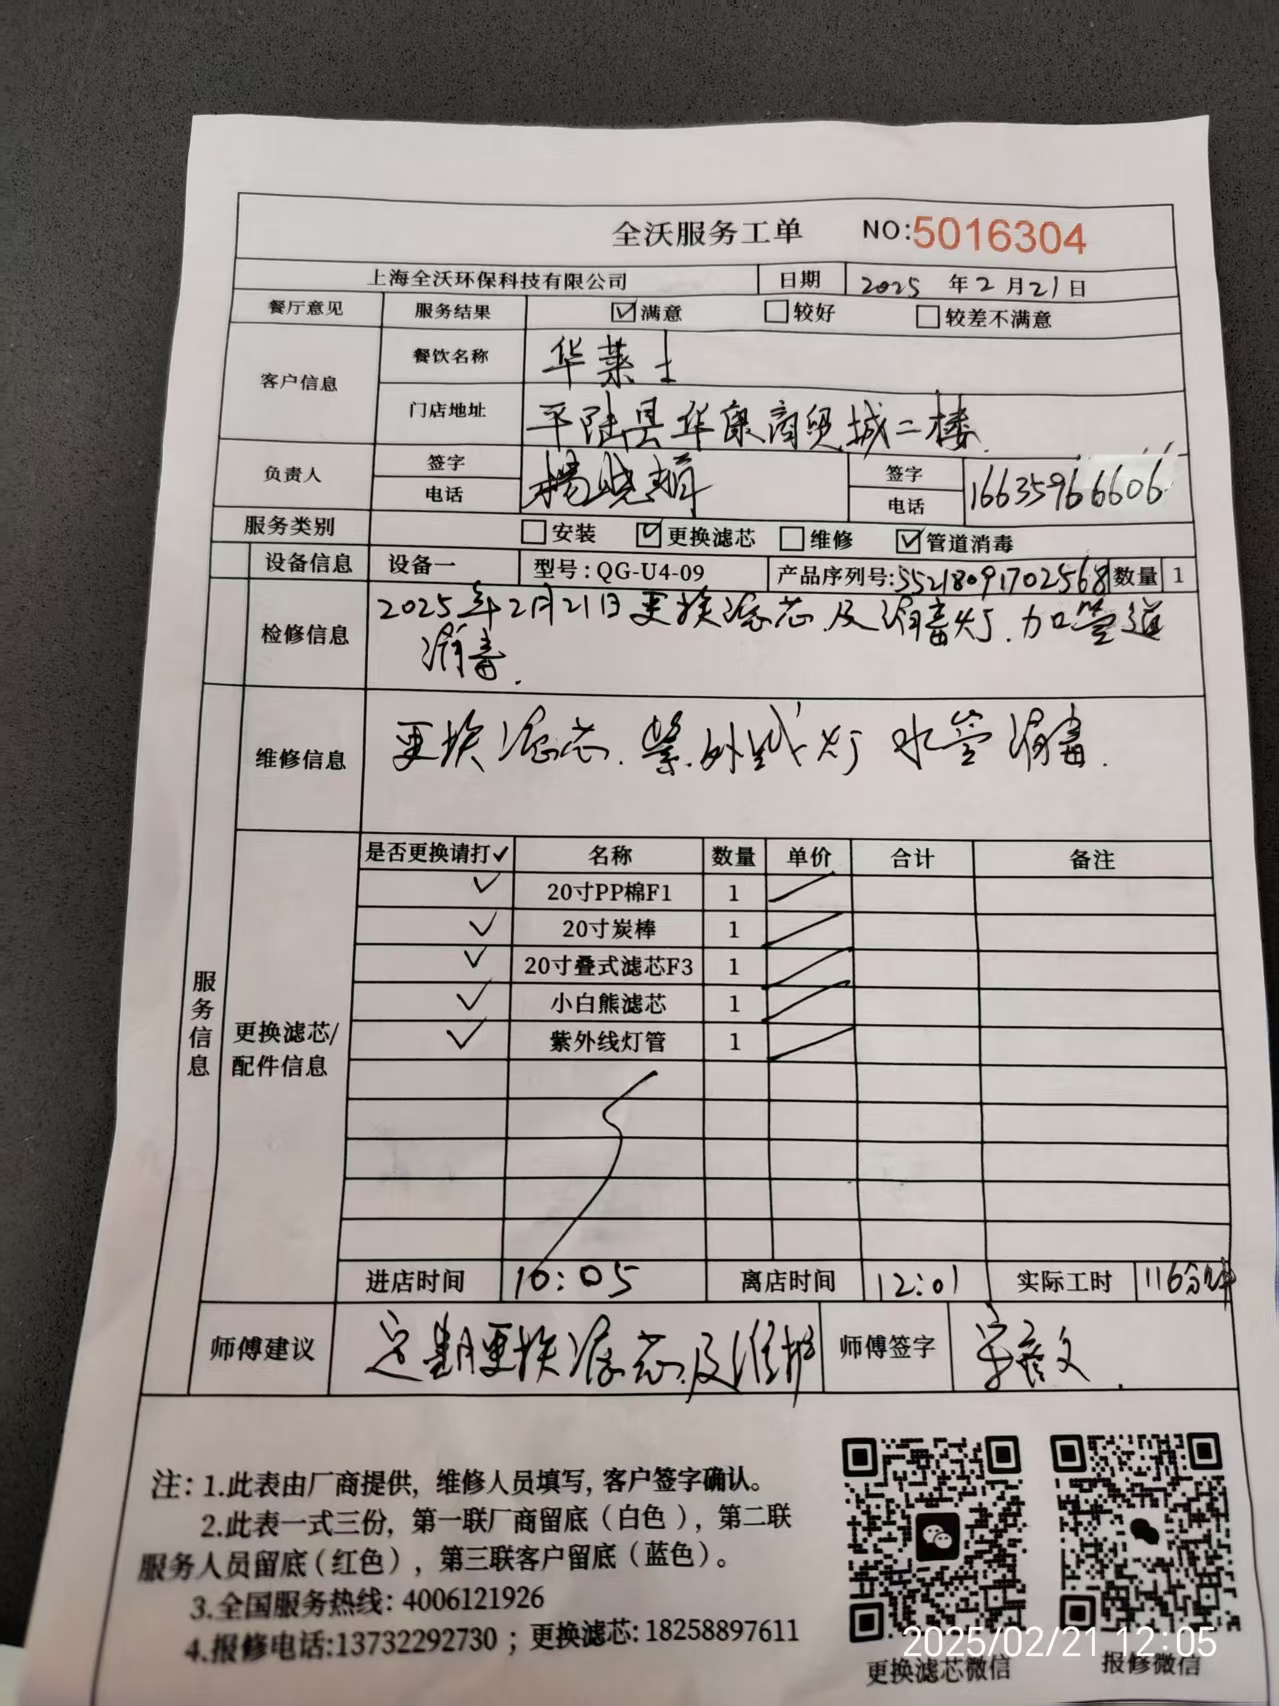 全沃服务工单 NO:5016304
上海全沃环保科技有限公司 日期 2025 年 2 月 21 日
餐厅意见 服务结果 ☑满意 □较好 □较差不满意
客户信息 餐饮名称 华莱士
门店地址 平陆县华康商贸城二楼
负责人 签字 电话 杨晓娟 签字 电话 16635966606
服务类别 □安装 ☑更换滤芯 □维修 ☑管道消毒
设备信息 设备一 型号:QG-U4-09 产品序列号:55218091702568 数量 1
检修信息 2025年2月21日更换滤芯及消毒灯.加管道
消毒.
维修信息 更换滤芯.紫外线灯 水管消毒.
服务信息
更换滤芯/
配件信息
是否更换请打✓ 名称 数量 单价 合计 备注
✓ 20寸PP棉F1 1
✓ 20寸炭棒 1
✓ 20寸叠式滤芯F3 1
✓ 小白熊滤芯 1
✓ 紫外线灯管 1
进店时间 10:05 离店时间 12:01 实际工时 116分钟
师傅建议 定期更换滤芯及维护 师傅签字
注:1.此表由厂商提供,维修人员填写,客户签字确认。
2.此表一式三份,第一联厂商留底(白色),第二联
服务人员留底(红色),第三联客户留底(蓝色)。
3.全国服务热线:4006121926
4.报修电话:13732292730;更换滤芯:18258897611
更换滤芯微信 报修微信
2025/02/21 12:05